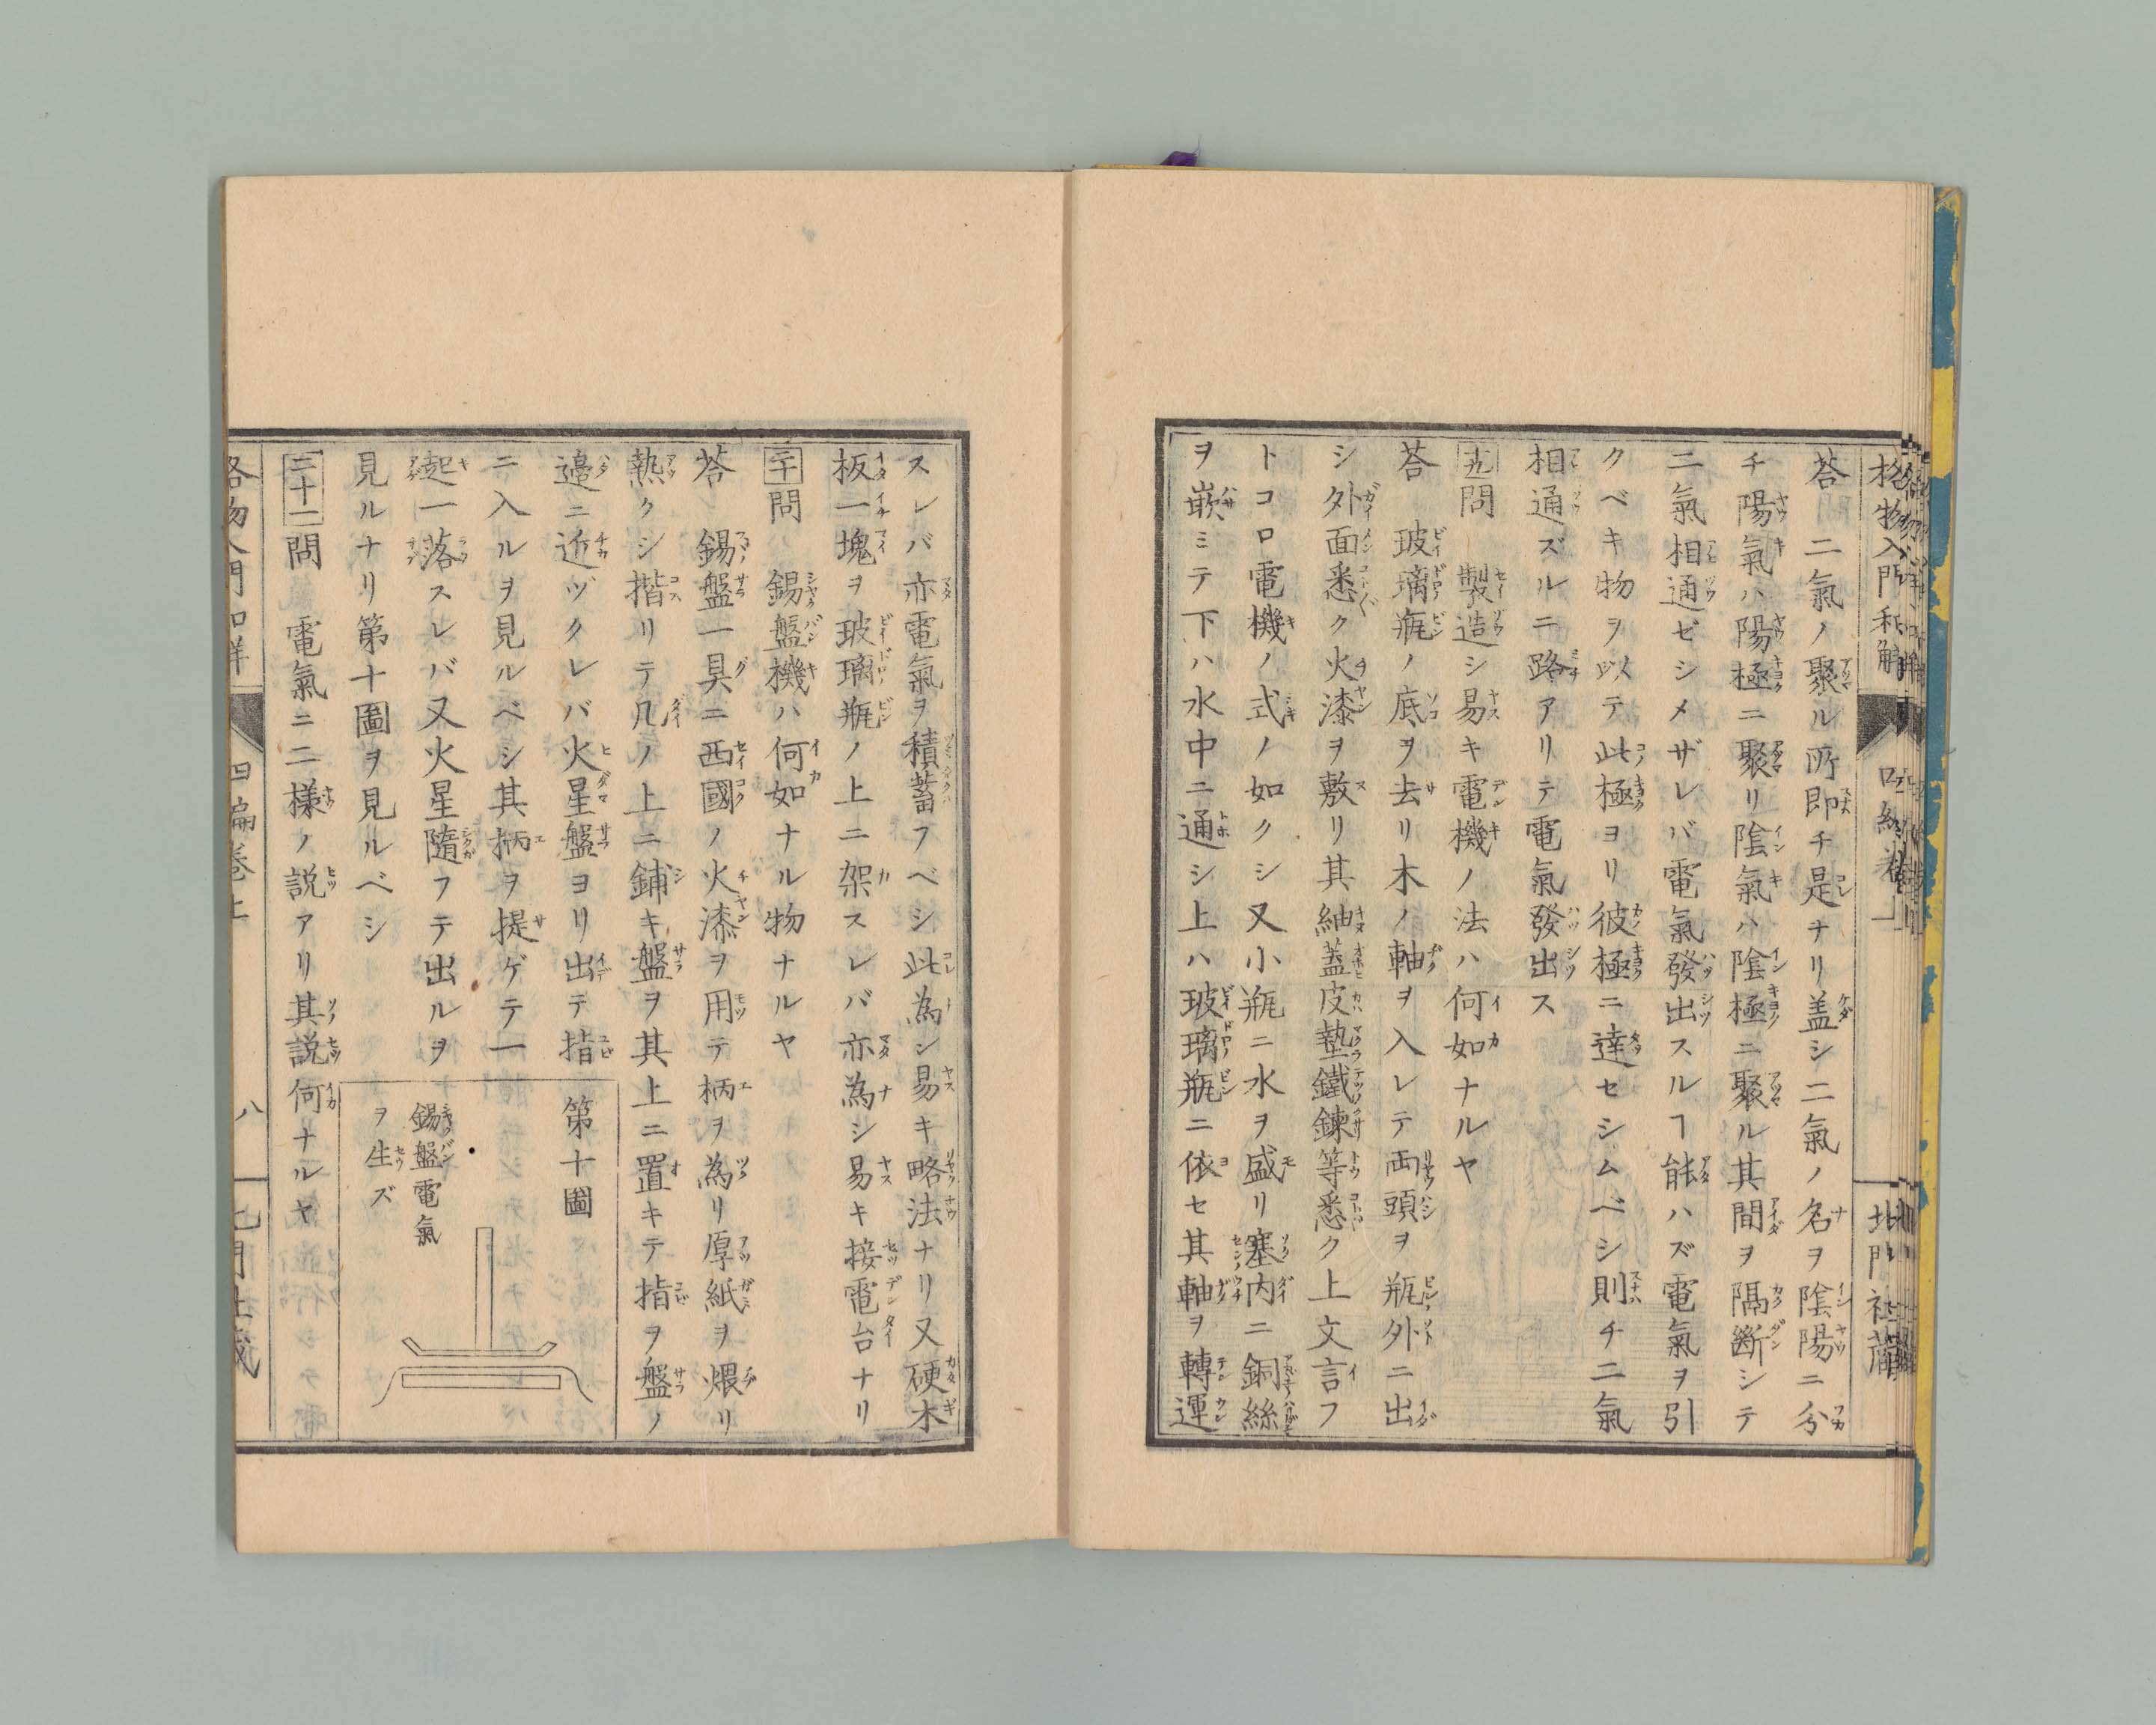 格物入門和解
北門社藏
荅　二氣ノ聚ル所即チ是ナリ盖シ二氣ノ名ヲ陰陽ニ分
チ陽氣ハ陽極ニ聚リ陰氣ハ陰極ニ聚ル其間ヲ隔斷シテ
二氣相通ゼシメザレバ電氣發出スルヿ能ハズ電氣ヲ引
クベキ物ヲ以テ此極ヨリ彼極ニ達セシムベシ則チ二氣
相通ズルニ路アリテ電氣發出ス
十九問　製造シ易キ電機ノ法ハ何如ナルヤ
荅　玻璃瓶ノ底ヲ去リ木ノ軸ヲ入レテ両頭ヲ瓶外ニ出
シ外面悉ク火漆ヲ敷リ其紬蓋皮墊鐵鍊等悉ク上文言フ
トコロ電機ノ式ノ如クシ又小瓶ニ水ヲ盛リ塞内ニ銅絲
ヲ嵌ミテ下ハ水中ニ通シ上ハ玻璃瓶ニ依セ其軸ヲ轉運
スレバ亦電氣ヲ積蓄フベシ此為シ易キ略法ナリ又硬木
板一塊ヲ玻璃瓶ノ上ニ架スレバ亦為シ易キ接電台ナリ
二十問　錫盤機ハ何如ナル物ナルヤ
荅　錫盤一具ニ西國ノ火漆ヲ用テ柄ヲ為リ厚紙ヲ煨リ
熱クシ揩リテ凡ノ上ニ鋪キ盤ヲ其上ニ置キテ指ヲ盤ノ
邉ニ近ヅクレバ火星盤ヨリ出テ指
ニ入ルヲ見ルベシ其柄ヲ提ゲテ一
起一落スレバ又火星隨フテ出ルヲ
見ルナリ第十圖ヲ見ルベシ
第十圖
錫盤電氣
ヲ生ズ
二十一問　電氣ニ二樣ノ説アリ其説何ナルヤ
格物入門和解
四編卷上
八
北門社藏